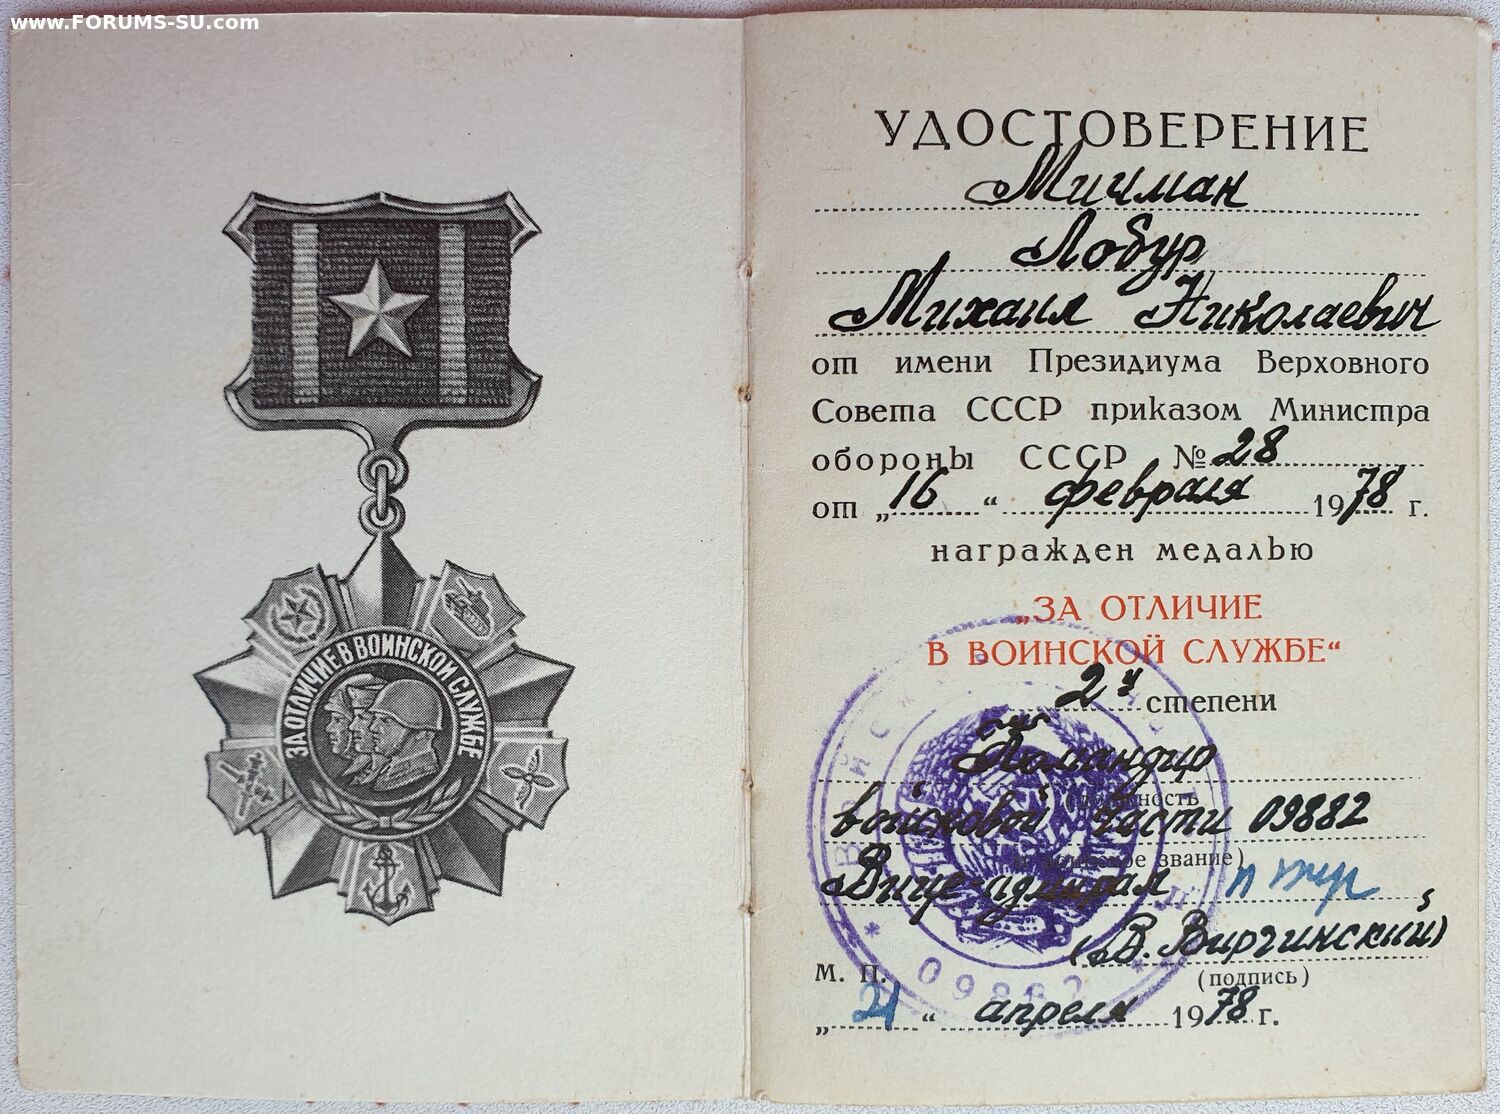 www.FORUMS-SU.com
ЗА ОТЛИЧИЕ В ВОИНСКОЙ СЛУЖБЕ
УДОСТОВЕРЕНИЕ
Мичман
Лобур
Михаил Николаевич
от имени Президиума Верховного
Совета СССР приказом Министра
обороны СССР № 28
от „16“ февраля 1978 г.
награжден медалью
„ЗА ОТЛИЧИЕ
В ВОИНСКОЙ СЛУЖБЕ“
2й степени
Командир
(должность
войсковой части 09882
воинское звание)
Вице-адмирал
(В. Виргинский)
М. П.
(подпись)
09882
„21“ апреля 1978 г.